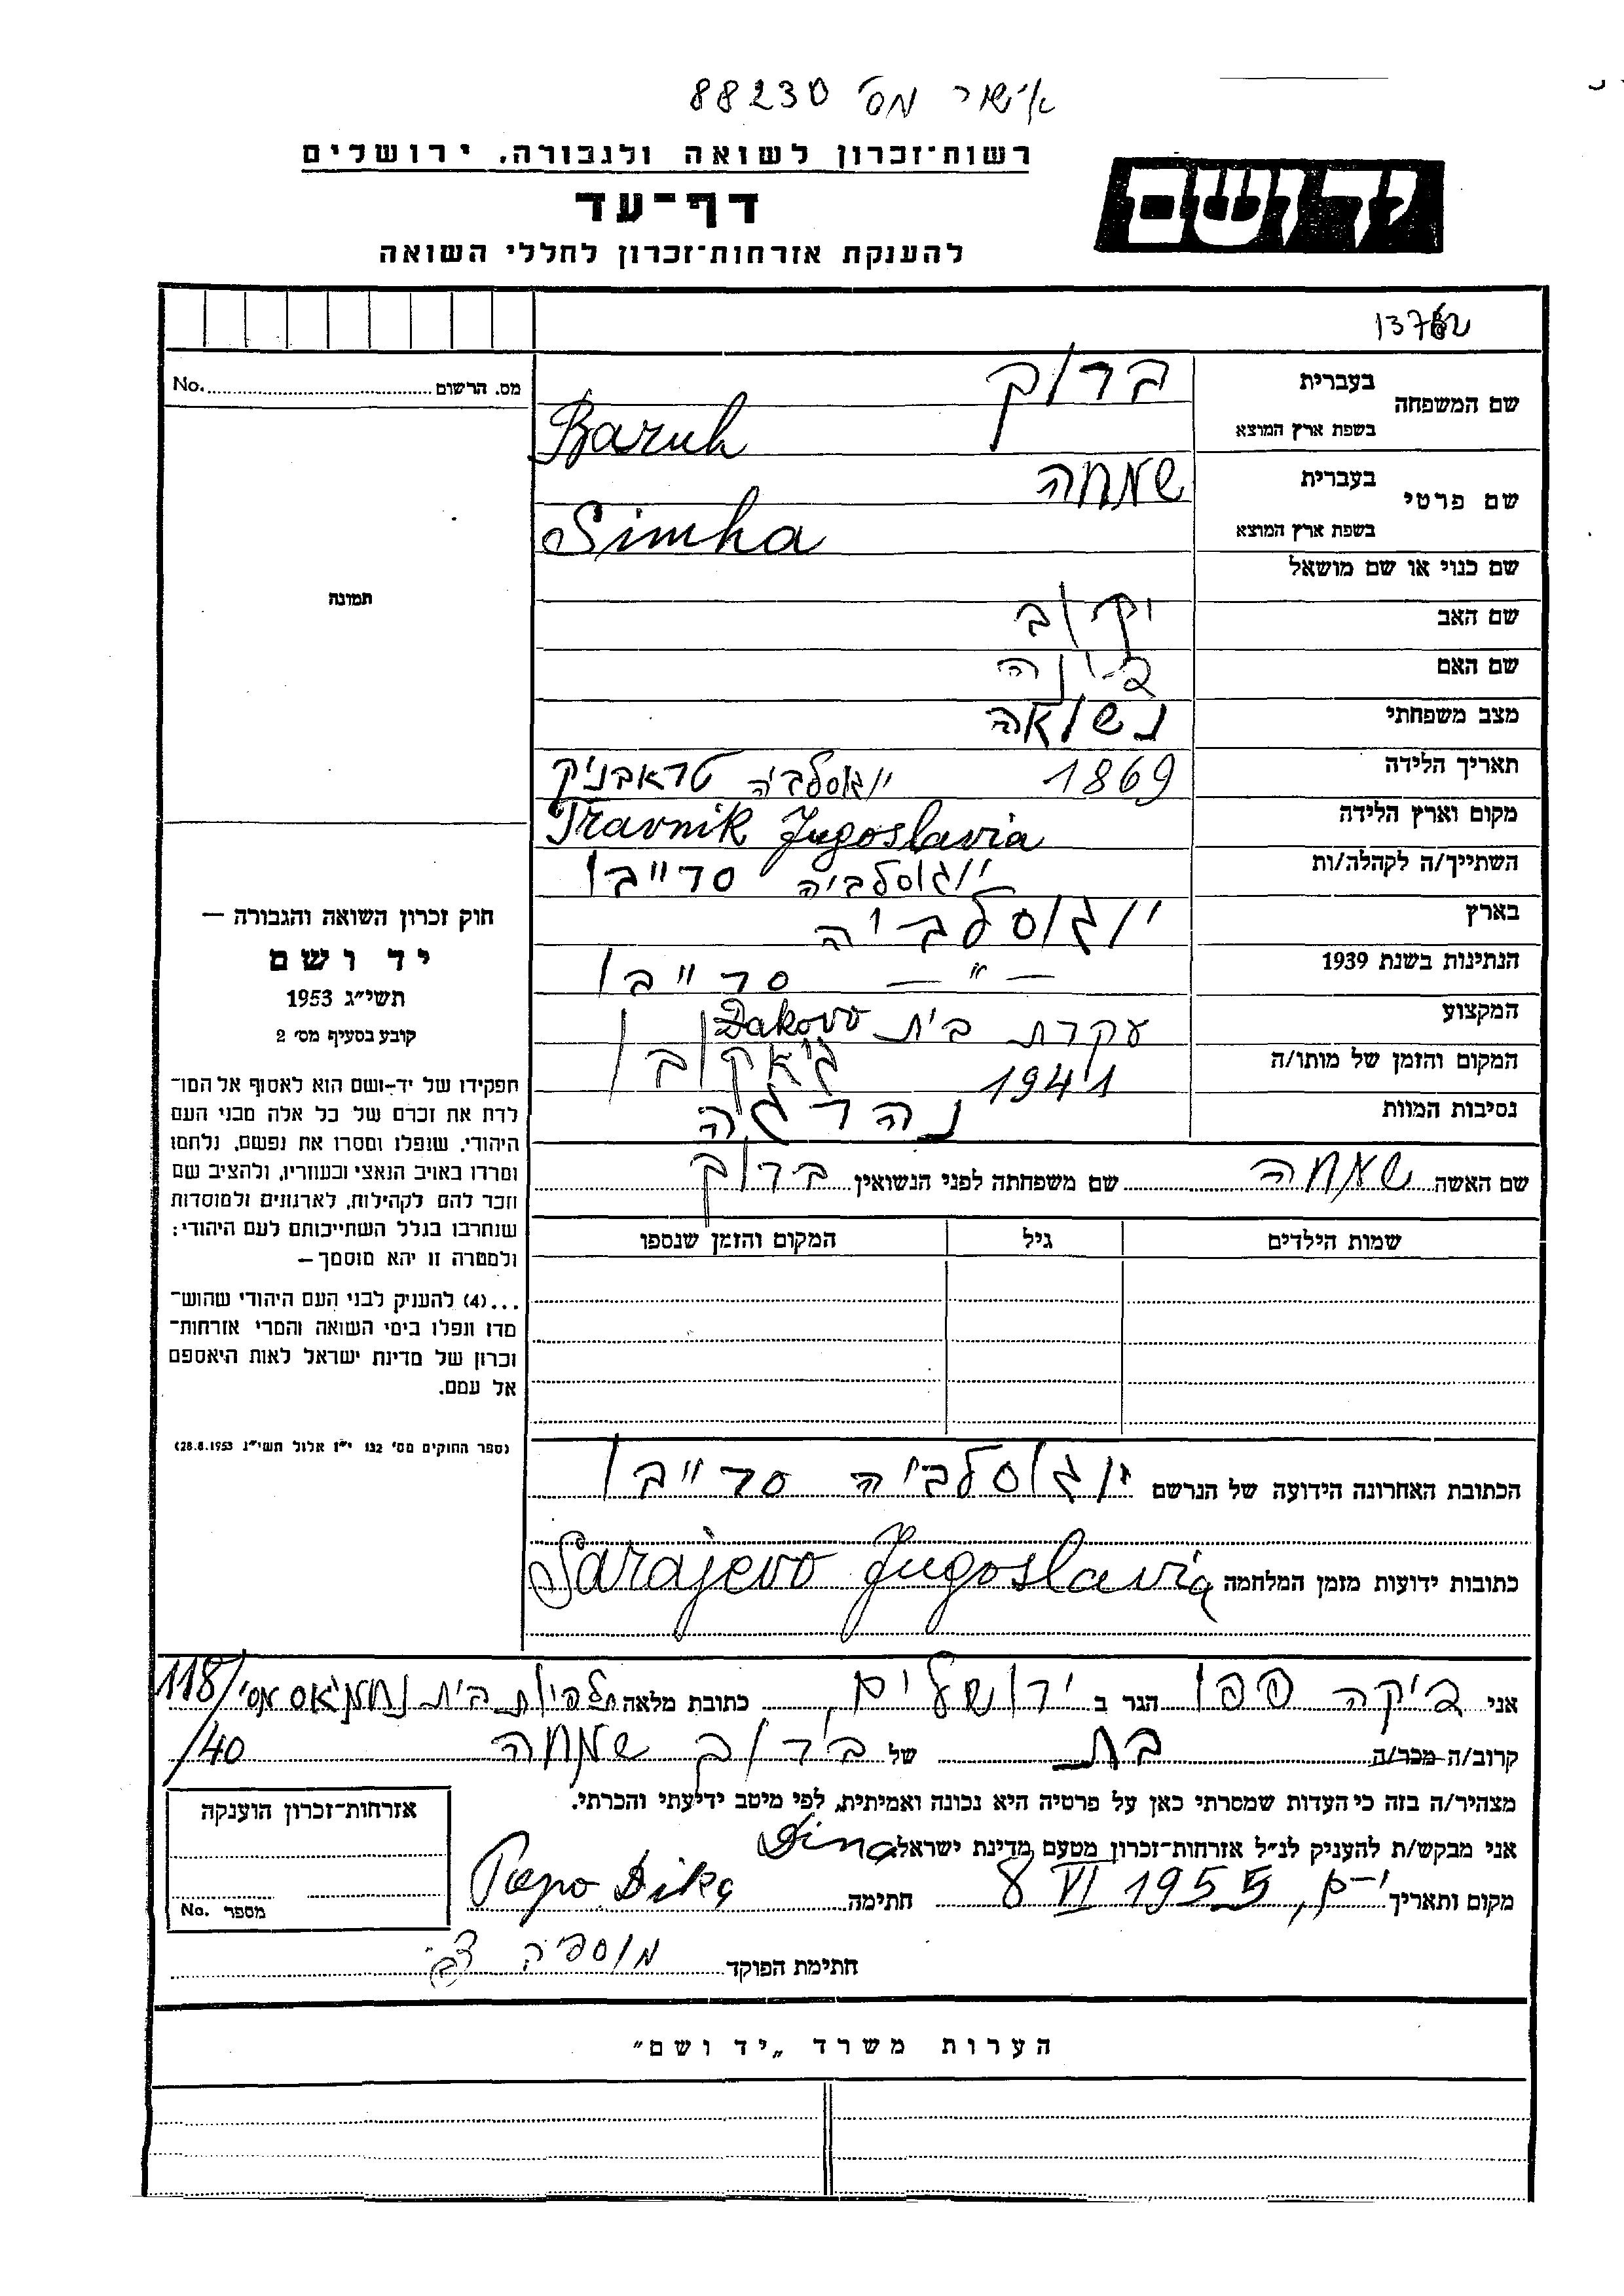 אישור מס' 88230
רשות־זכרון לשואה ולגבורה, ירושלים
יד ושם
דף־עד
להענקת אזרחות־זכרון לחללי השואה
מס. הרשום No.
שם המשפחה בעברית ברוך
בשפת ארץ המוצא Baruh
שם פרטי בעברית שמחה
בשפת ארץ המוצא Simha
תמונה
שם כנוי או שם מושאל
שם האב יקוב
שם האם בינה
מצב משפחתי נשואה
תאריך הלידה 1869 יוגוסלביה טראבניק
מקום וארץ הלידה Travnik Jugoslavia
השתייך/ה לקהלה/ות יוגוסלביה סרייבו
בארץ יוגוסלביה
הנתינות בשנת 1939 — " — סרייבו
המקצוע עקרת בית Đakovo
המקום והזמן של מותו/ה 1941 ג'אקובו
נסיבות המוות נהרגה
שם האשה שמחה שם משפחתה לפני הנשואין ברוך
שמות הילדים גיל המקום והזמן שנספו
חוק זכרון השואה והגבורה —
יד ושם
תשי״ג 1953
קובע בסעיף מס׳ 2
תפקידו של יד־ושם הוא לאסוף אל המו־
לדת את זכרם של כל אלה מבני העם
היהודי, שנפלו ומסרו את נפשם, נלחמו
ומרדו באויב הנאצי ובעוזריו, ולהציב שם
וזכר להם לקהילות, לארגונים ולמוסדות
שנחרבו בגלל השתייכותם לעם היהודי:
ולמטרה זו יהא מוסמך—
...(4) להעניק לבני העם היהודי שהוש־
מדו ונפלו בימי השואה והמרי אזרחות־
זכרון של מדינת ישראל לאות היאספם
אל עמם.
(ספר החוקים מס׳ 132 י״ז אלול תשי״ג 28.8.1953)
הכתובת האחרונה הידועה של הנרשם יוגוסלביה סרייבו
כתובות ידועות מזמן המלחמה Sarajevo Jugoslavia
אני דיקה פפו הגר ב ירושלים כתובת מלאה תלפיות בית נחמיאס מס' 118/
קרוב/ה מכר/ה בת של ברוך שמחה /40
מצהיר/ה בזה כי העדות שמסרתי כאן על פרטיה היא נכונה ואמיתית, לפי מיטב ידיעתי והכרתי.
אני מבקש/ת להעניק לנ״ל אזרחות־זכרון מטעם מדינת ישראל. Dina
מקום ותאריך י-ם, 8 VI 1955 חתימה Papo Dika
אזרחות־זכרון הוענקה
מספר No.
חתימת הפוקד
הערות משרד „יד ושם״